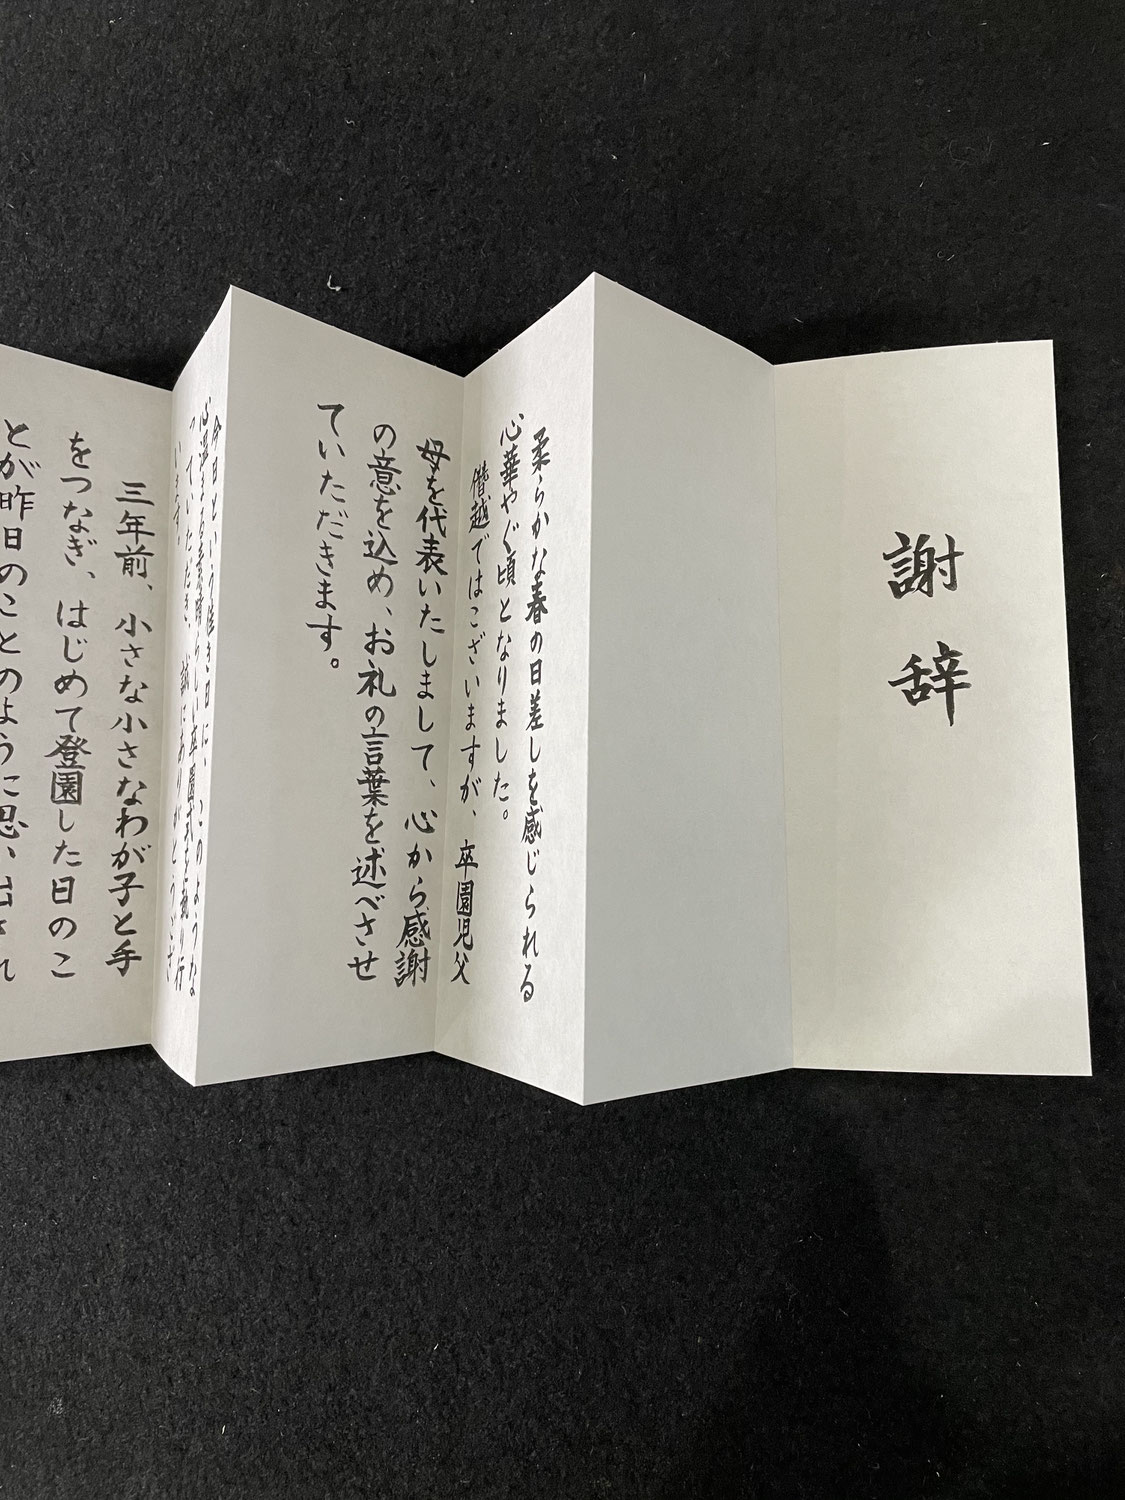 謝辞
柔らかな春の日差しを感じられる
心華やぐ頃となりました。
僭越ではございますが、卒園児父
母を代表いたしまして、心から感謝
の意を込め、お礼の言葉を述べさせ
ていただきます。
今日という佳き日に、このような
心温まる素晴らしい卒園式を執り行
っていただき、誠にありがとうござ
います。
三年前、小さな小さなわが子と手
をつなぎ、はじめて登園した日のこ
とが昨日のことのように思い出され